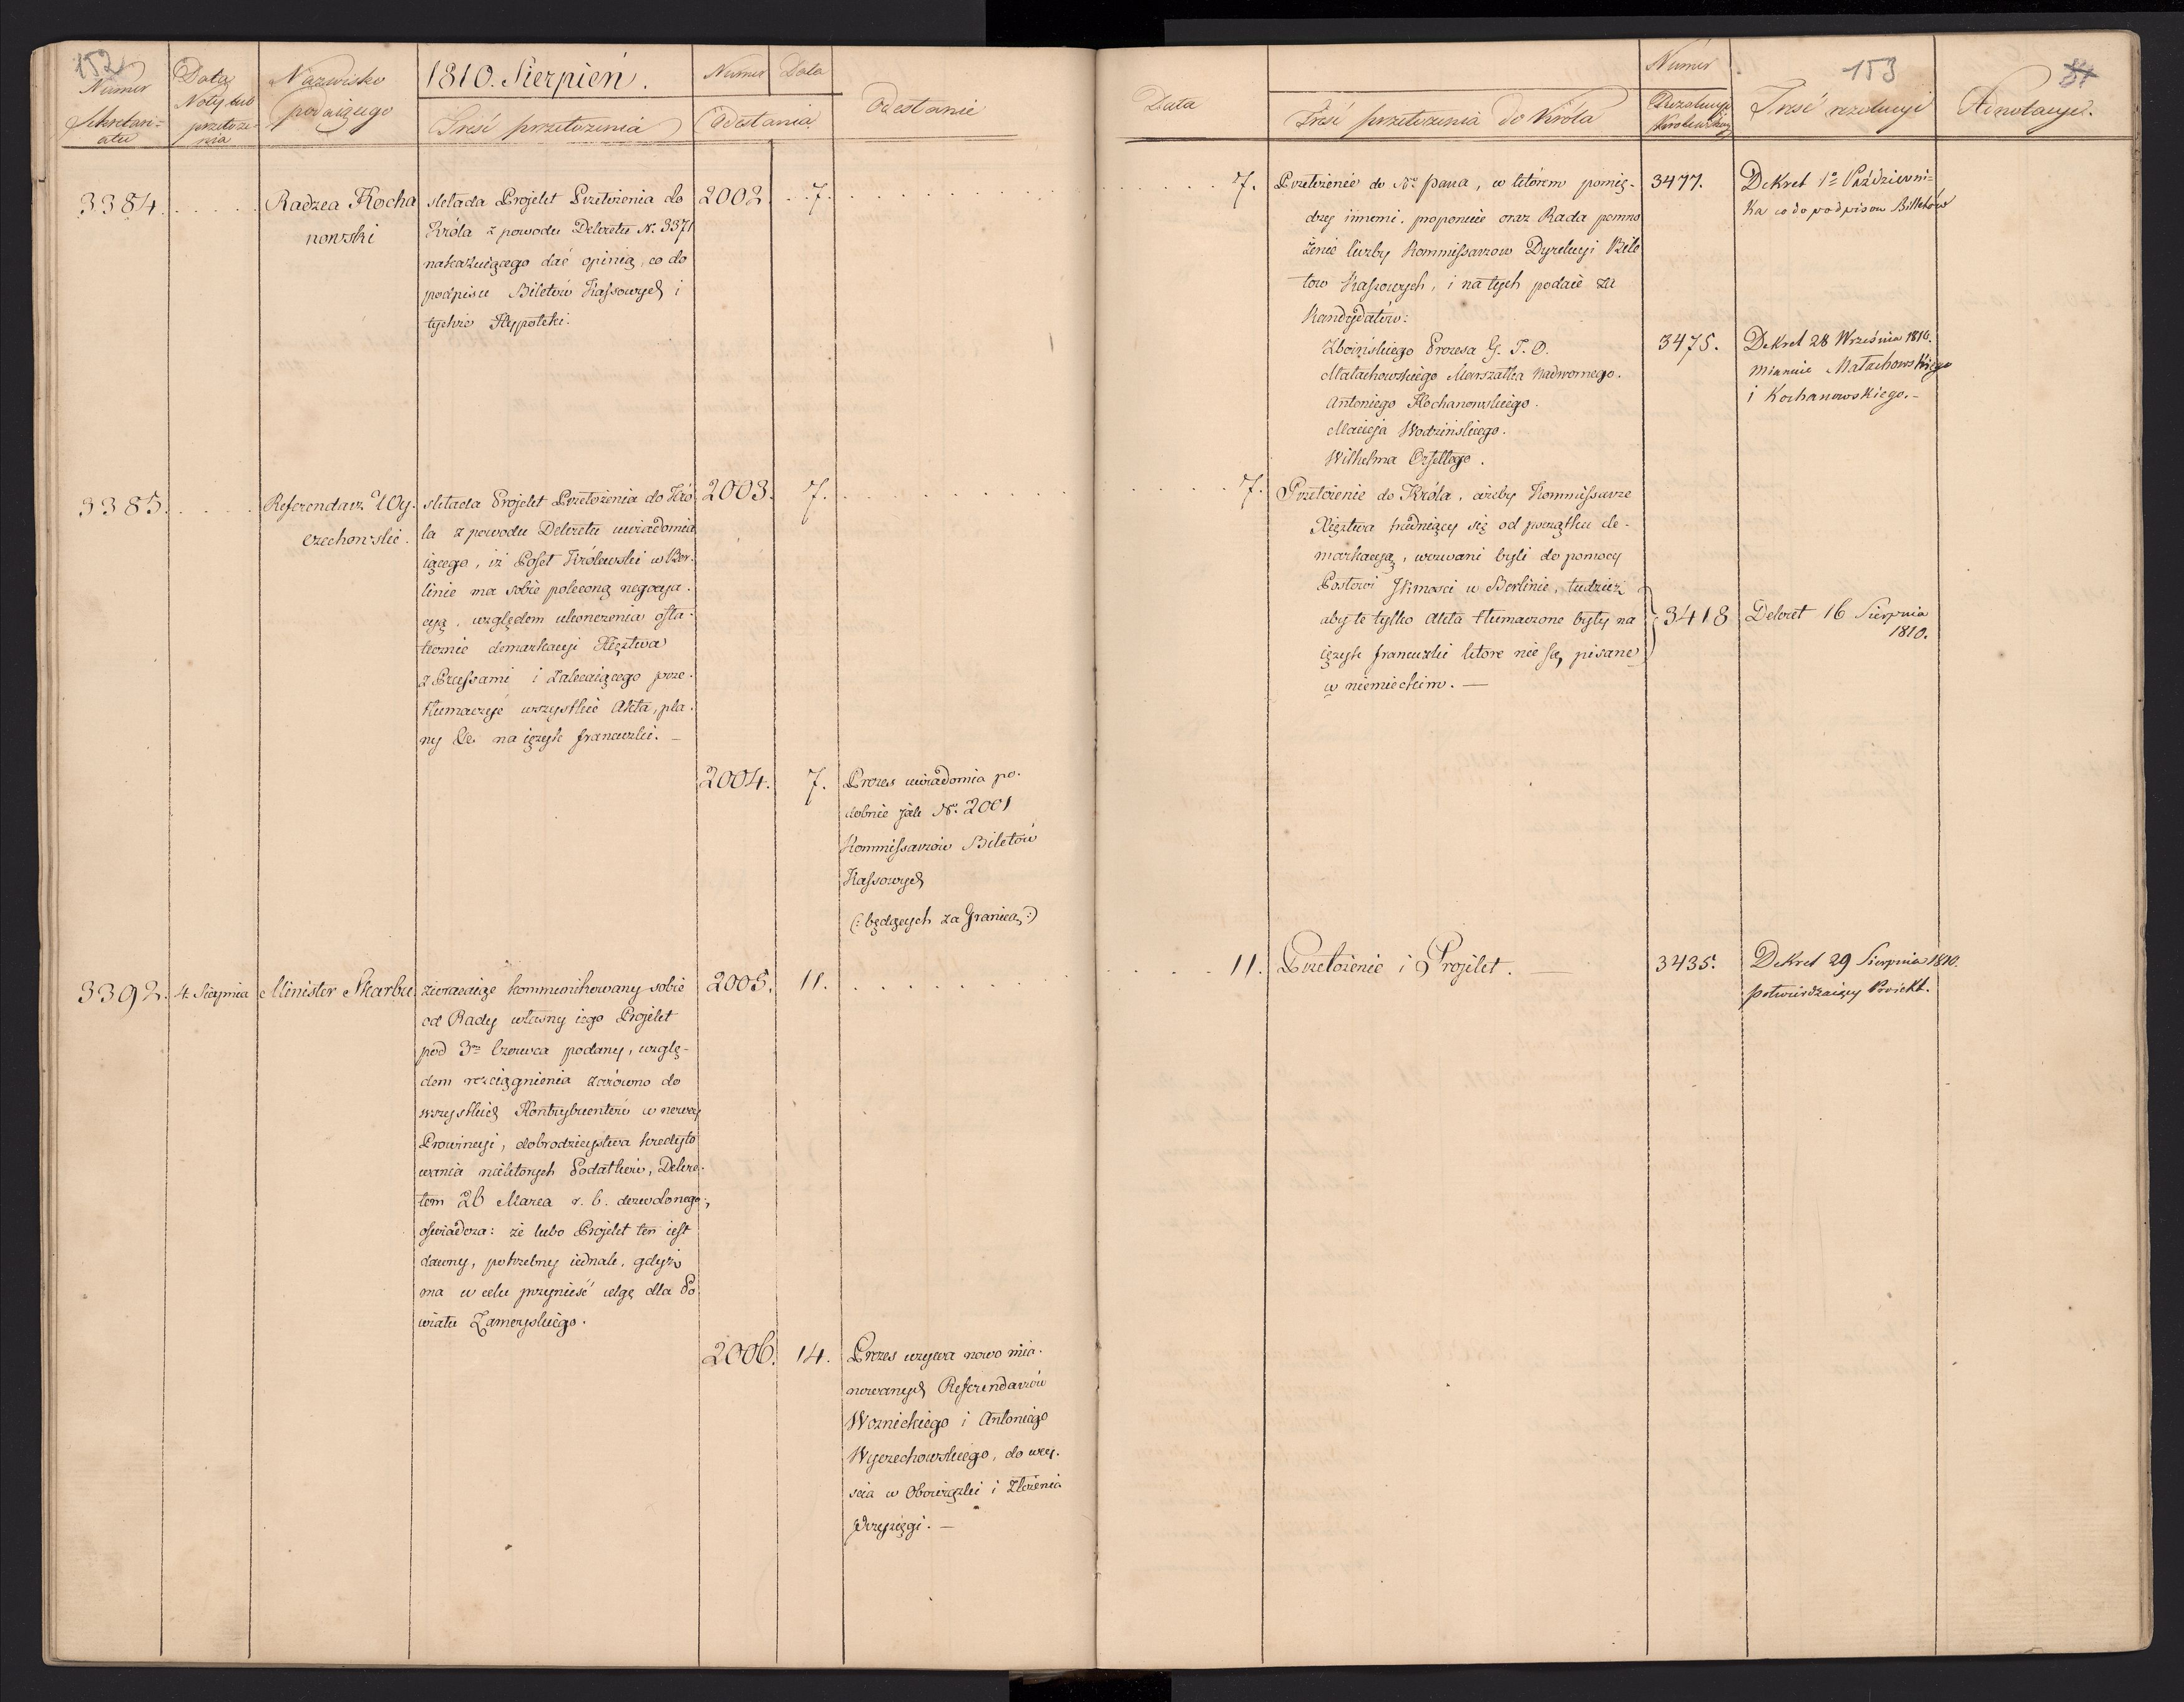 152
Numer
Sekretari=
atu
Data
Noty lub
przełoże-
nia
Nazwisko
podaiącego
1810. Sierpień.
Treść przełożenia
Numer Data
Odesłania
Odesłanie
3384.
Radzca Kocha
nowski
składa Projekt Przełożenia do
Króla z powodu Dekretu No. 3371
nakazuiącego dać opinią, co do
podpisu Biletów Kassowych i
tychże Hypoteki.
2002. 7.
3385.
Referendarz Wy-
czechowski.
składa Projekt Przełożenia do Kró
la z powodu Dekretu uwiadomia
iącego, iż Poseł Królewski w Ber-
linie ma sobie poleconą negocya-
cyą, względem ukończenia osta-
tecznie demarkacyi Xięstwa
z Prussami i zalecaiącego prze-
tłumaczyć wszystkie Akta, pla-
ny &c. na ięzyk francuzki. —
2003. 7.
2004. 7.
Prezes uwiadomia po-
dobnie jak No. 2001
Kommissarzów Biletów
Kassowych
(: będących za Granicą :)
3392. 4. Sierpnia
Minister Skarbu
zwracaiąc kommunikowany sobie
od Rady własny iego Projekt
pod 3m Czerwca podany, wzglę-
dem rozciągnienia zarówno do
wszystkich Kontrybuentów w nowey
Prowincyi, dobrodzieystwa kredyto
wania niektórych Podatków, Dekre-
tem 26 Marca r. b. dozwolonego;
oświadcza: że lubo Projekt ten iest
dawny, potrzebny iednak, gdyż
ma w celu przynieść ulgę dla Po
wiatu Zamoyskiego.
2005. 11.
2006. 14.
Prezes wzywa nowo mia-
nowanych Referendarzów
Woznickiego i Antoniego
Wyczechowskiego, do wey-
scia w Obowiązki i złożenia
Przysięgi. —
153
81
Data
Treść przełożenia do Króla
Numer
Rezolucyi
Królewskiey
Treść rezolucyi
Adnotacye.
7.
Przełożenie do Nго Pana, w którem pomię-
dzy innemi, proponuie oraz Rada pomno
żenie liczby Kommissarzow Dyrekcyi Bile
tow Kassowych, i na tych podaie za
Kandydatów:
Zboińskiego Prezesa G. I. O.
Małachowskiego Marszałka Nadwornego.
Antoniego Kochanowskiego.
Macieja Wodzińskiego.
Wilhelma Orsettego.
3477.
Dekret 1o Październi=
ka co do podpisow Billetów
3475.
Dekret 28 Września 1810.
mianuie Małachowskiego
i Kochanowskiego. -
7.
Przełożenie do Króla, ażeby Kommissarze
Xięstwa trudniący się od początku de-
markacyą, wezwani byli do pomocy
Posłowi JKmości w Berlinie, tudzież
aby te tylko Akta tłumaczone były na
ięzyk francuzki które nie są pisane
w niemieckim. —
3418
Dekret 16 Sierpnia
1810.
11.
Przełożenie i Projekt. —
3435.
Dekret 29 Sierpnia 1810.
potwierdzaiący Proiekt.